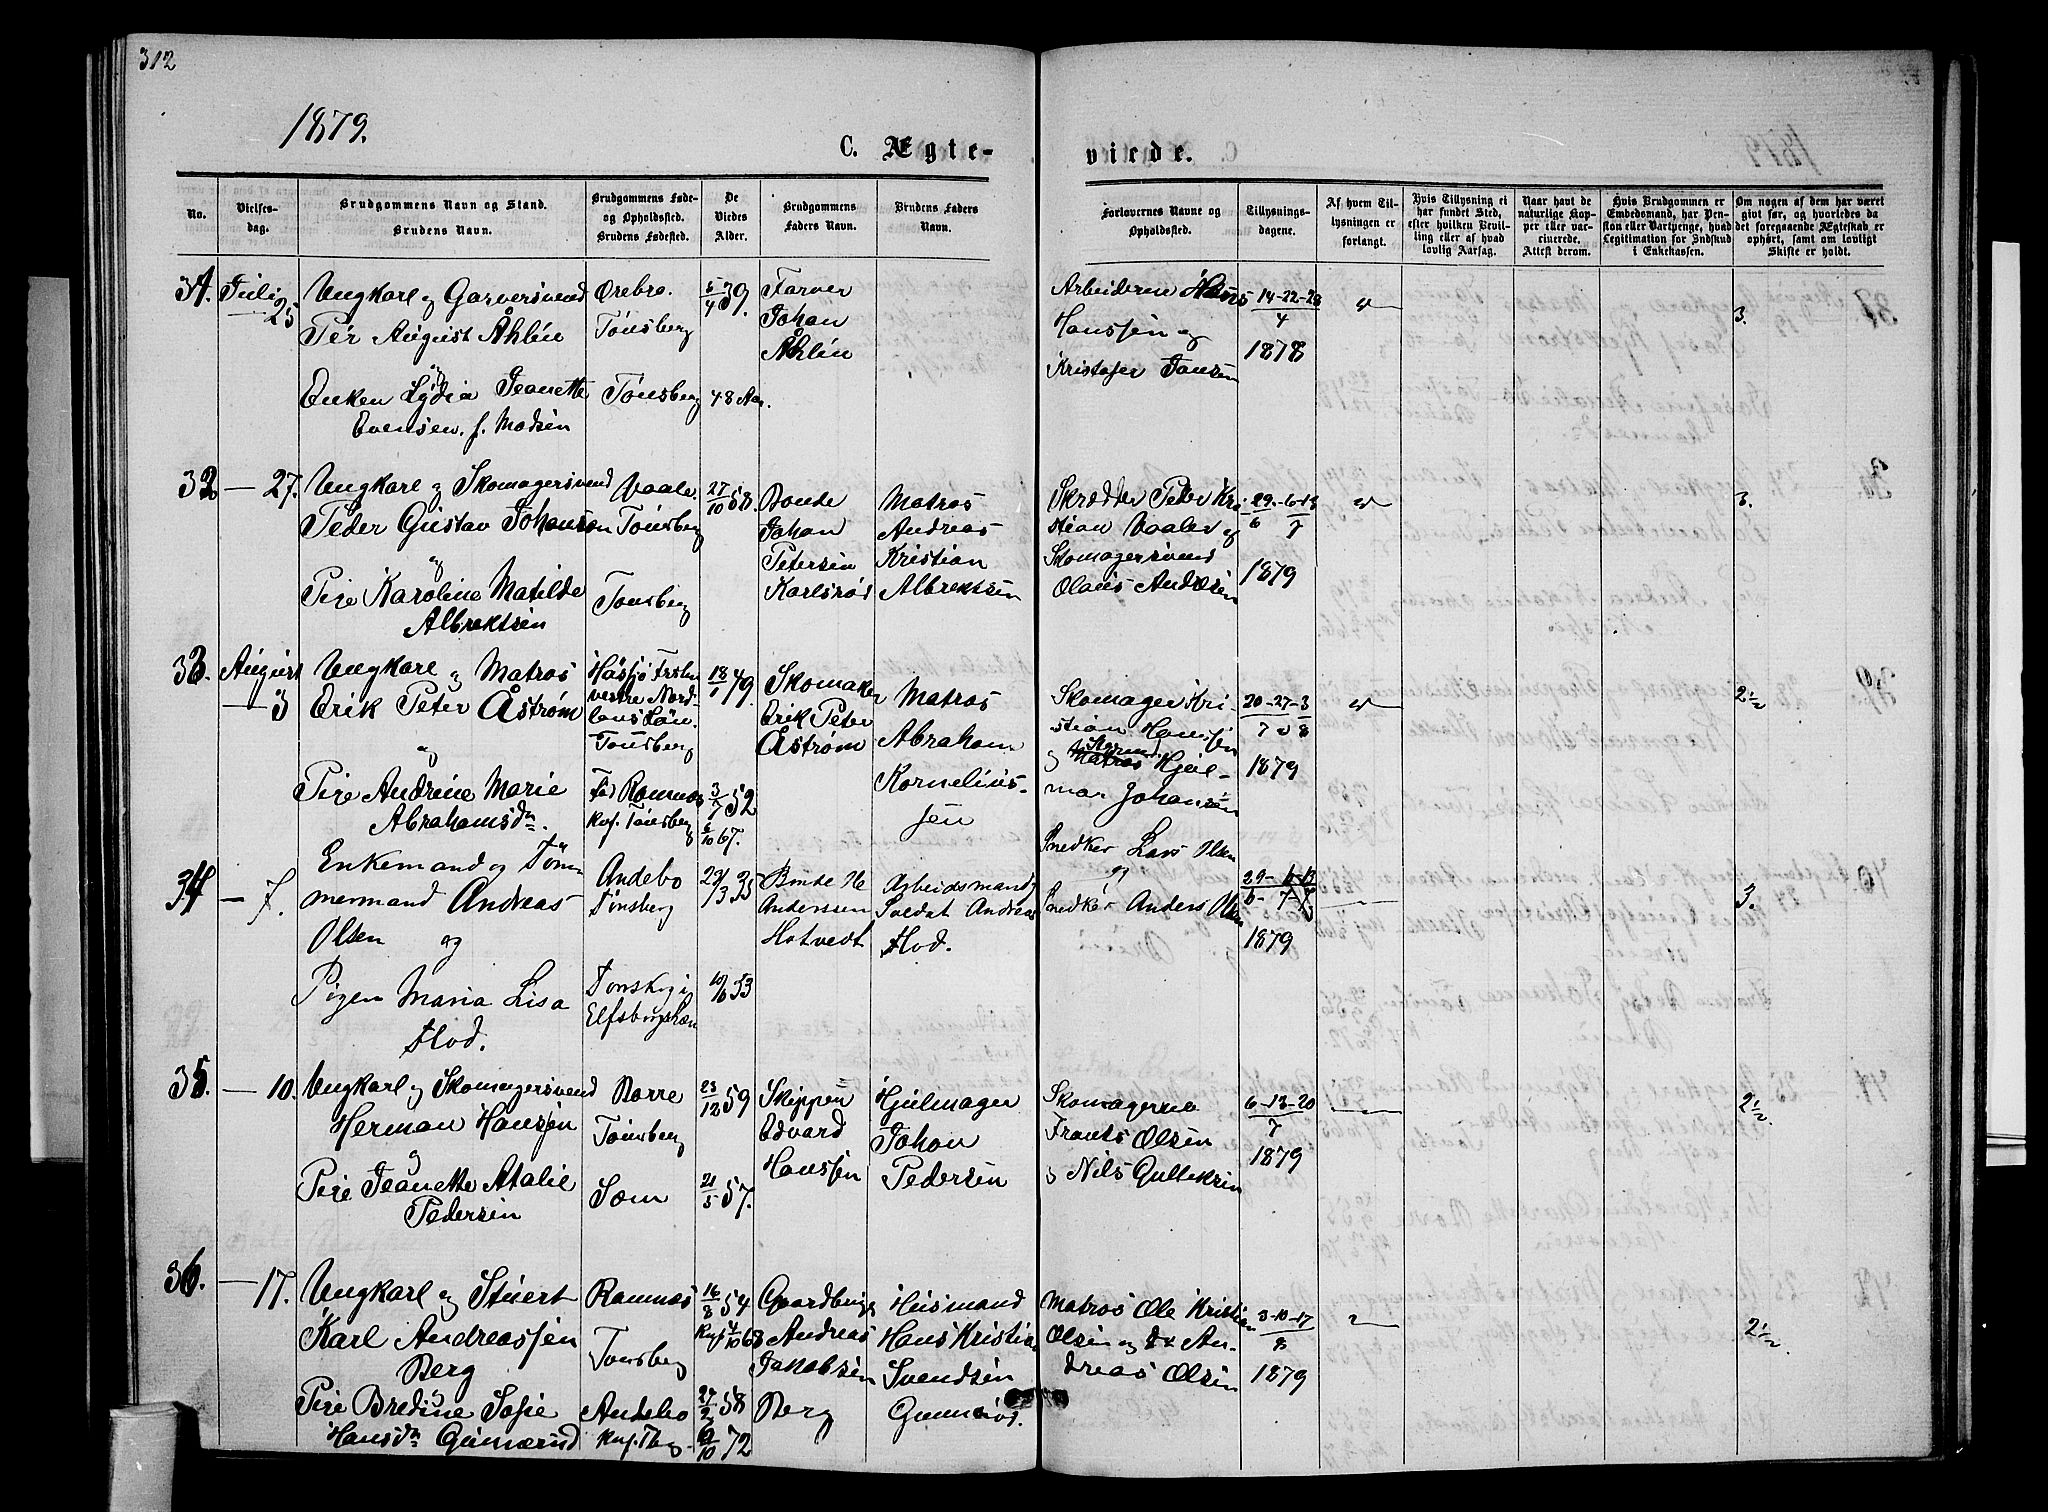 312
1879.
C. Ægte-
viede.
No.
Vielses-
dag.
Brudgommens Navn og Stand.
Brudens Navn.
Brudgommens Føde-
og Opholdssted.
Brudens Fødested.
De
Viedes
Alder.
Brudgommens
Faders Navn.
Brudens Faders
Navn.
Forlovernes Navne og
Opholdssted.
Tillysnings-
dagene.
Af hvem Til-
lysningen er
forlangt.
Hvis Tillysning ei
har fundet Sted,
efter hvilken Bevil-
ling eller af hvad
lovlig Aarsag.
Naar havt de
naturlige Kop-
per eller vac-
cinerede.
Attest derom.
Hvis Brudgommen er
Embedsmand, har Pen-
sion eller Vartpenge, hvad
Legitimation for Indskud
i Enkekassen.
Om nogen af dem har været
givt før, og hvorledes da
det foregaaende Ægteskab er
ophørt, samt om lovligt
Skifte er holdt.
31. Juli 25
Ungkarl og Garversvend
Per August Åhlin
og
Enken Lydia Jeanette
Evensen, f. Madsen
Ørebro.
Tönsberg
Tönsberg
5/4 39.
48 Aar.
Farver
Johan
Åhlin
Arbeiderne Hans
Hanssen og
Kristofer Jansen
14-22-28
4
1878
3.
32 — 27.
Ungkarl og Skomagersvend
Peder Gustav Johansen
og
Pige Karoline Matilde
Albrektsen
Vaale.
Tönsberg
Tönsberg
27/10 58.
Bonde
Johan
Petersen
Karlsrød
Matros
Andreas
Kristian
Albrektsen
Skrædder Peter Kri
stian Vaaler og
Skomagersvend
Olaus Andresen
29-6-13
6 7
1879
3.
33. August
— 3
Ungkarl og Matros
Erik Peter Åström
og
Pige Andrine Marie
Abrahamsdn.
Tönsberg
Fød Ramnæs
Knf. Tönsberg
18/1 49.
3/7 52
6/10 67.
Skomaker
Erik Peter
Åström
Matros
Abraham
Kornelius-
sen
Skomager Kri-
stian Hanssen
og Hjal-
mar Johansen
20-27-3
7 8
1879
2½
34 — 7.
Enkemand og Töm-
mermand Andreas
Olsen og
Pigen Maria Lisa
Flod.
Andebo
Tönsberg
Elfsborgs Læn
29/3 35
10/6 33
Bonde Ole
Anderssen
Hotvedt
Arbeidsmand
Soldat Andreas
Flod.
Snedker Lars Olsen
og
Snedker Anders Olsen
29-6-13
6-7-7
1879
3.
35. — 10.
Ungkarl og Skomagersvend
Herman Hanssen
og
Pige Jeanette Atalie
Pedersen
Borre
Tönsberg
Sæm
23/12 59
21/5 57.
Skipper
Edvard
Hanssen
Hjulmager
Johan
Pedersen
Skomagerne
Frants Olsen
og Nils Gulleksen
6-13-20
7
1879
2½
36. — 17.
Ungkarl og Stuert
Karl Andreassen
Berg
Pige Bredine Sofie
Hansdn Gunnerød
Ramnæs
Tönsberg
Andebo
Knf. Tbg.
16/8 54
Knf 4/10 68
27/2 58
6/10 72
Gaardbruger
Andreas
Jakobsen
Berg
Husmand
Hans Kristian
Svendsen
Gunnerød.
Matros Ole Kristian
Olsen og do An-
dreas Olsen
3-10-17
8
1879
2½.